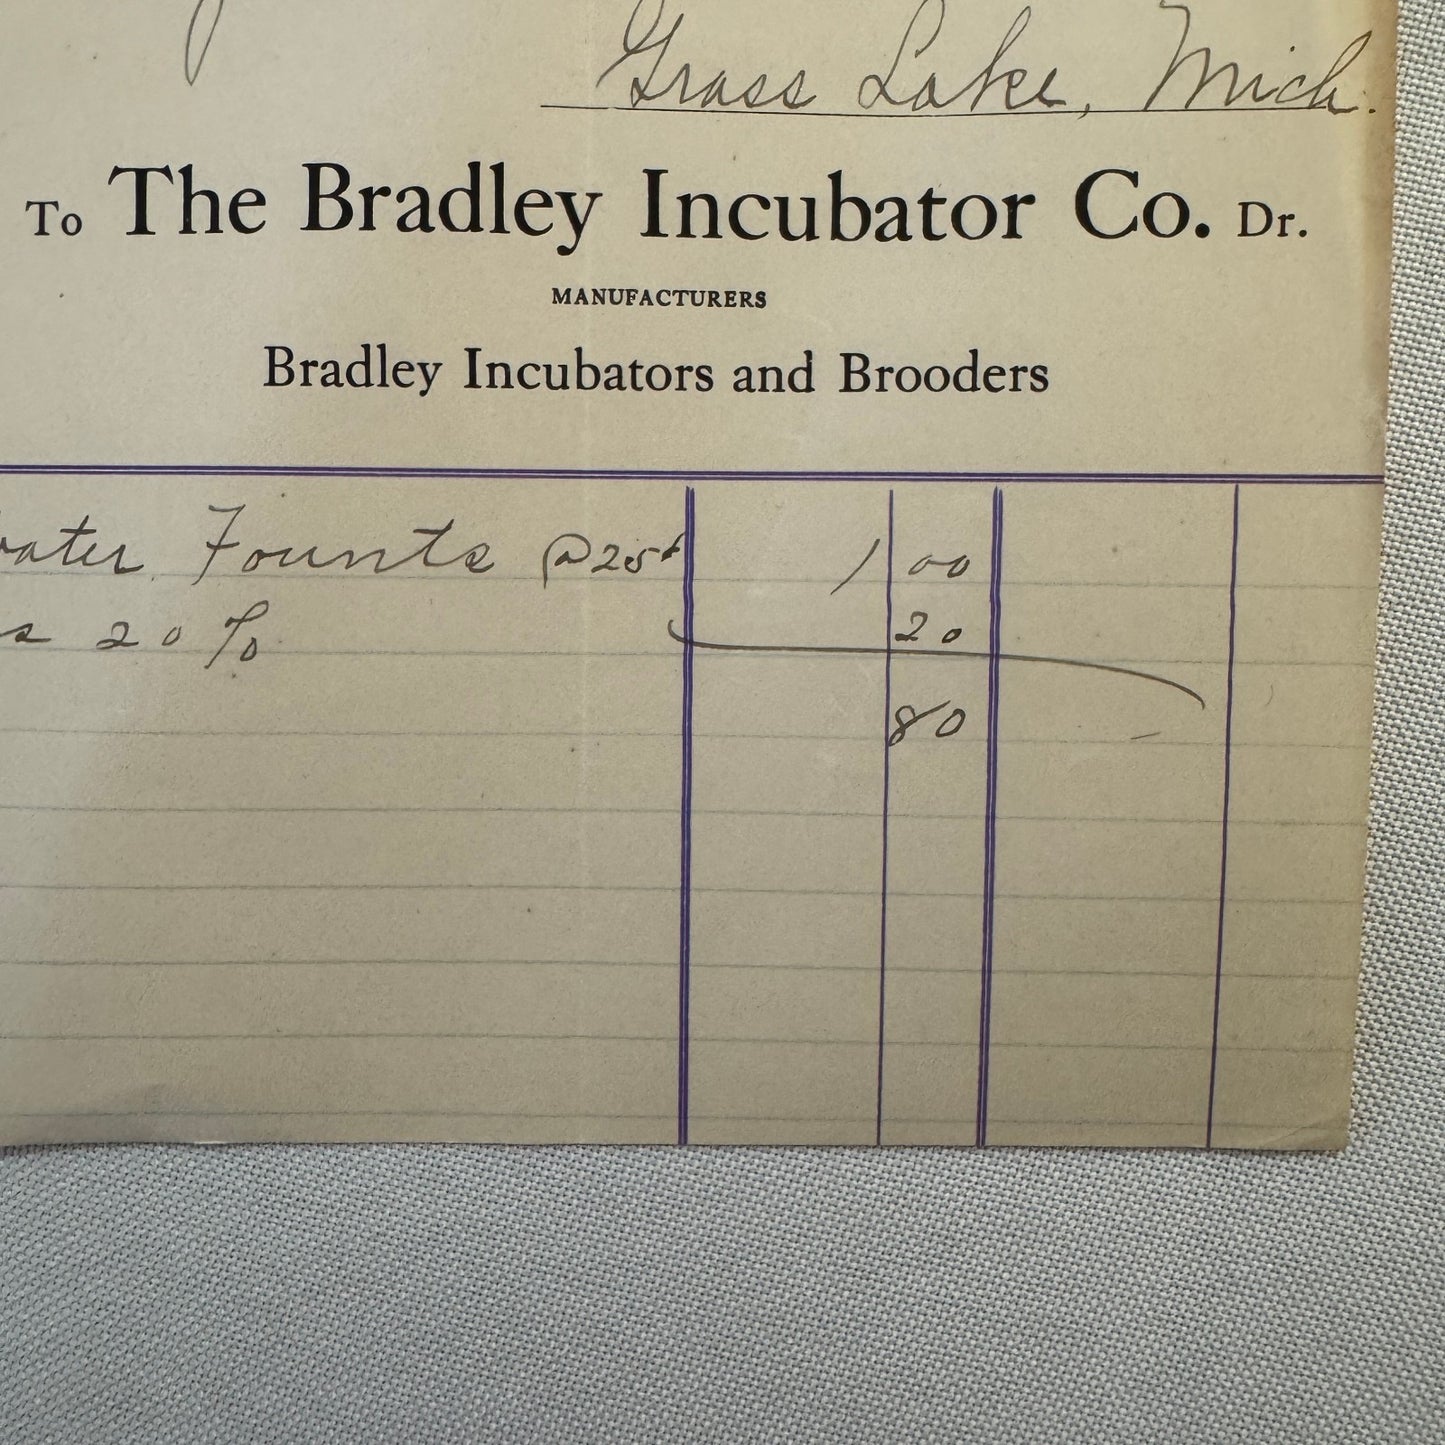 Grass Lake, Mich.
To The Bradley Incubator Co. Dr.
MANUFACTURERS
Bradley Incubators and Brooders
ater Founts @ 25¢ 1 00
s 20 % 20
80